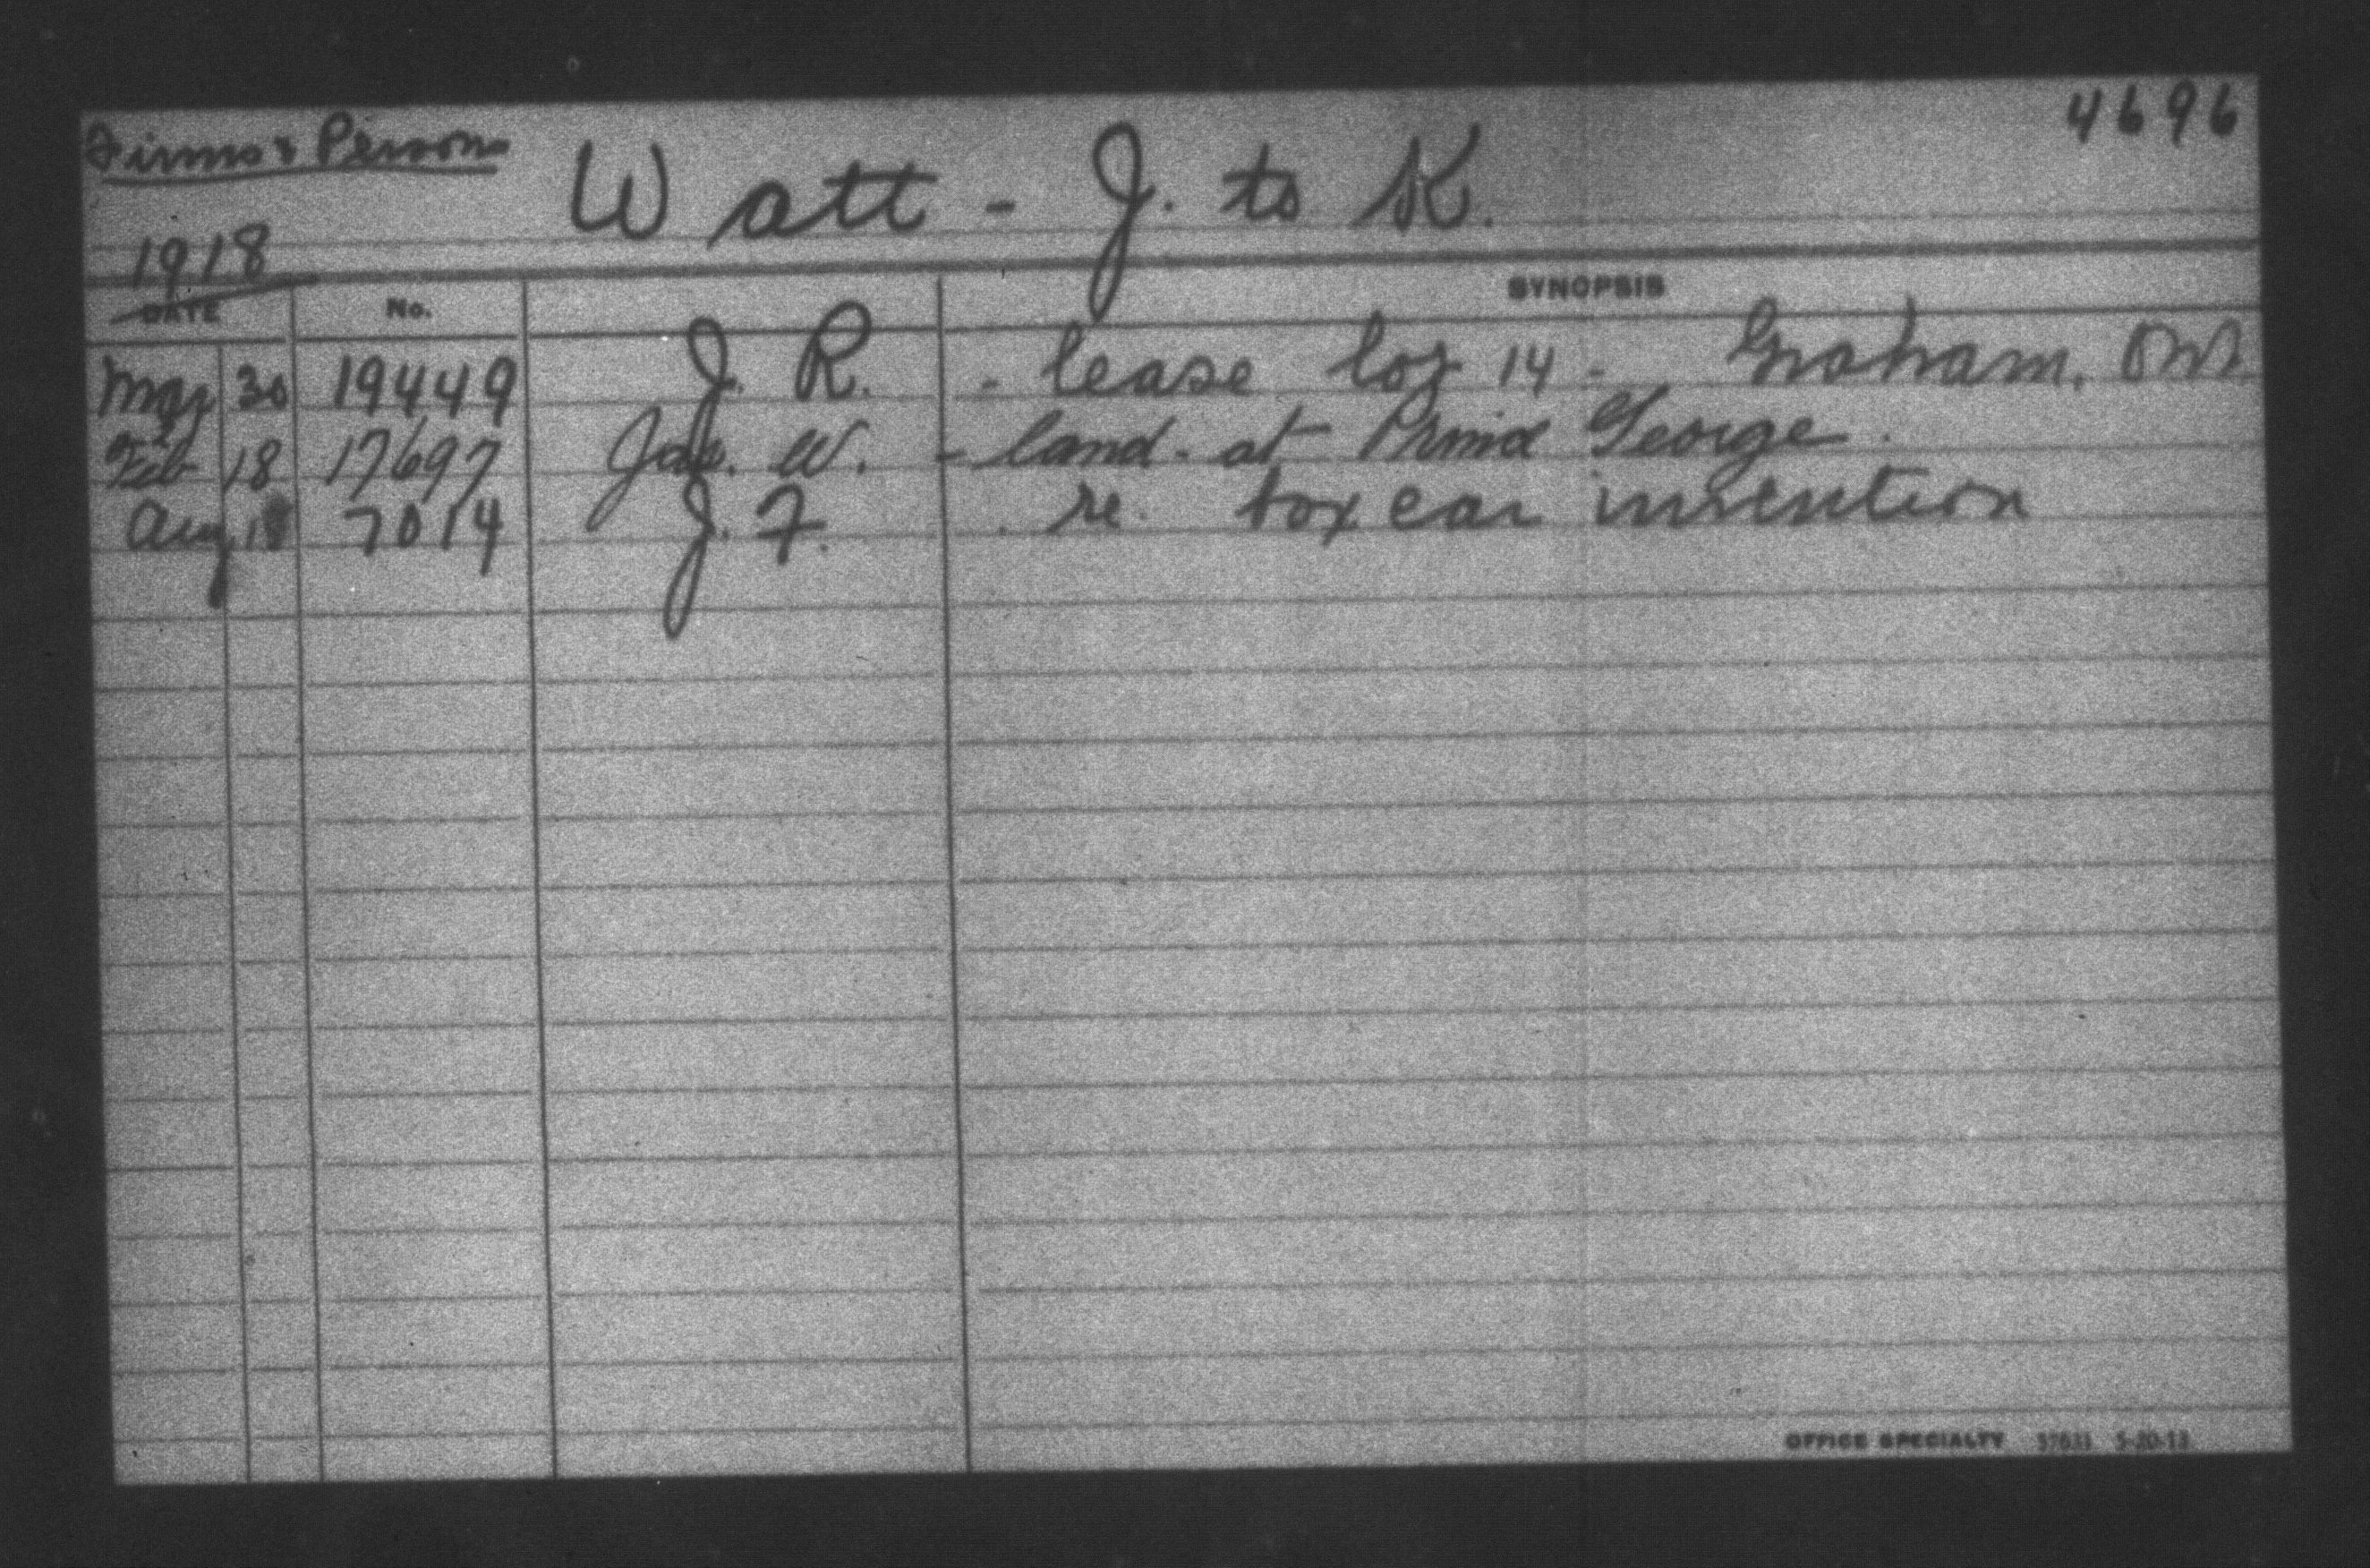 Firms & Persons
4696
Watt - J. to K.
1918
DATE No. SYNOPSIS
Mar 30 19449 J. R. - lease log 14 - Graham, Ont
Feb 18 17697 Jas. W. - land - at Prince George.
Aug 18 7014 J. F. . re. box car invention
OFFICE SPECIALTY 5-20-13